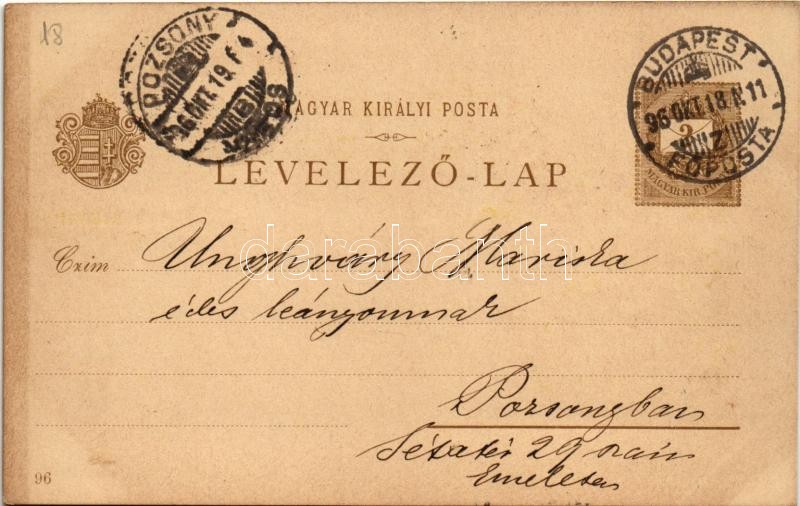 18
POZSONY
96 OKT. 19. F 4
B
VÁROS
BUDAPEST
96 OKT. 18. N 11
Z
FŐPOSTA
2
MAGYAR KIR. POSTA
MAGYAR KIRÁLYI POSTA
LEVELEZŐ-LAP
darabanth
Czim Unghváry Mariska
édes leányomnak
Pozsonyban
Sétatér 29 szám
Emeleten
96